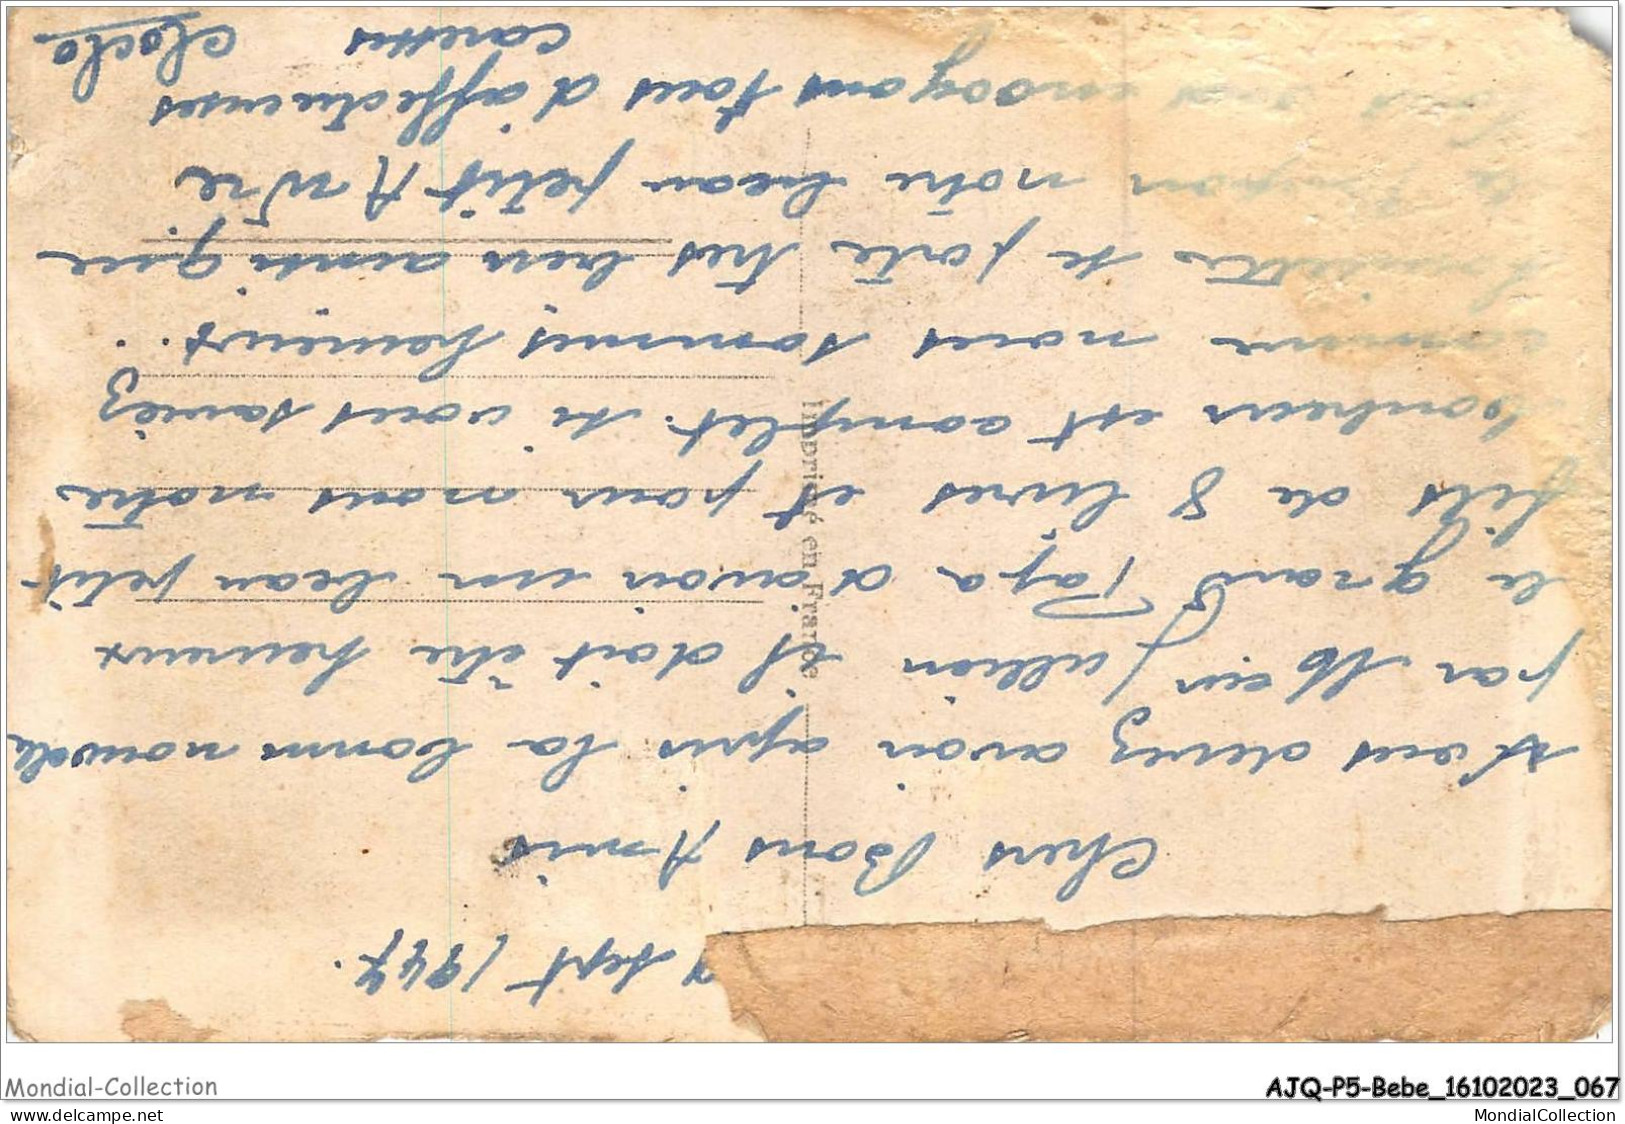 sept 1947.
Chers Bons Amis
Vous devez avoir appris la bonne nouvelle
par Mr Jullian il doit être heureux
le grand Papa d'avoir un beau petit
fils de 8 livres et pour nous notre
bonheur est complet. si vous saviez
comme nous sommes heureux..
se porte très bien ainsi que
notre beau petit Andre
vous envoyons tous d'affectueuses
caresses
Imprimé en France
Mondial-Collection
AJQ-P5-Bebe_16102023_067
delcampe.net
MondialCollection